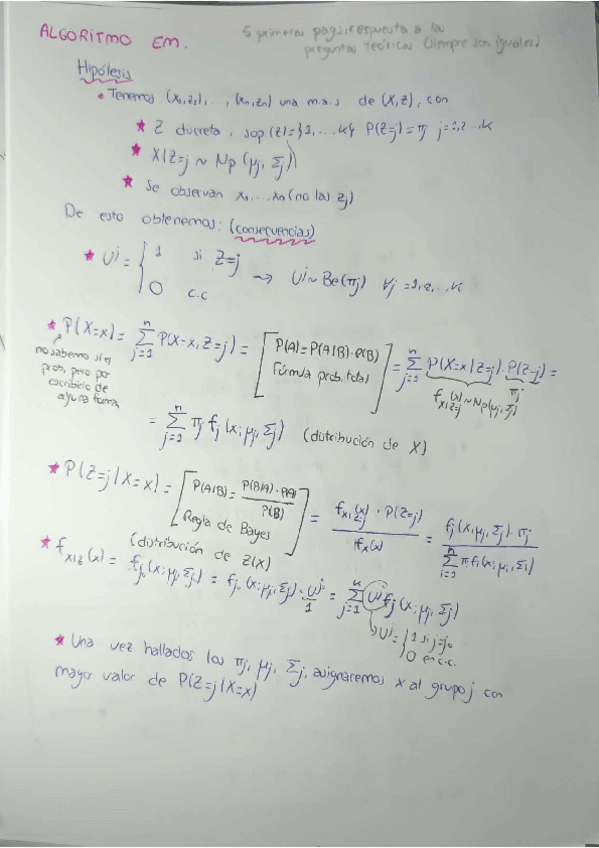 ALGORITMO EM.
5 primeras pags: respuesta a las
preguntas teóricas (siempre son iguales)
Hipólesis
• Tenemos (x₁,z₁),...,(xn,zn) una m.a.s de (X,Z), con
* Z discreta, sop(Z)={1,...,k} P(Z=j)=πj j=1,2...,k
* X|Z=j ~ Np(μj, Σj)
* Se observan x₁,...,xn (no las zj)
De esto obtenemos: (consecuencias)
* Uʲ = { 1 si Z=j
0 c.c
→ Uʲ ~ Be(πj) ∀j=1,2,...,k
* P(X=x) = Σ_{j=1}^{n} P(X=x, Z=j) = [P(A)=P(A|B)·P(B) Fórmula prob. total] = Σ_{j=1}^{n} P(X=x|Z=j)·P(Z=j) =
f_{X|Z=j}(x) ~ Np(μj, Σj) πj
no sabemos si es
prob, pero por
escribirlo de
alguna forma
= Σ_{j=1}^{n} πj fj(x; μj, Σj) (distribución de X)
* P(Z=j|X=x) = [P(A|B) = P(B|A)·P(A) / P(B) Regla de Bayes] = f_{X|Z=j}(x)·P(Z=j) / f_X(x) = fj(x, μj, Σj)·πj / Σ_{i=1}^{n} πi fi(x; μi, Σi)
(distribución de Z|X)
* f_{X|Z}(x) = f_{j₀}(x; μj, Σj) = f_{j₀}(x; μj, Σj)·Uʲ = Σ_{j=1}^{k} Uʲ fj(x; μj, Σj)
1
Uʲ = { 1 si j=j₀
0 en c.c.
* Una vez hallados los πj, μj, Σj, asignaremos x al grupo j con
mayor valor de P(Z=j|X=x)